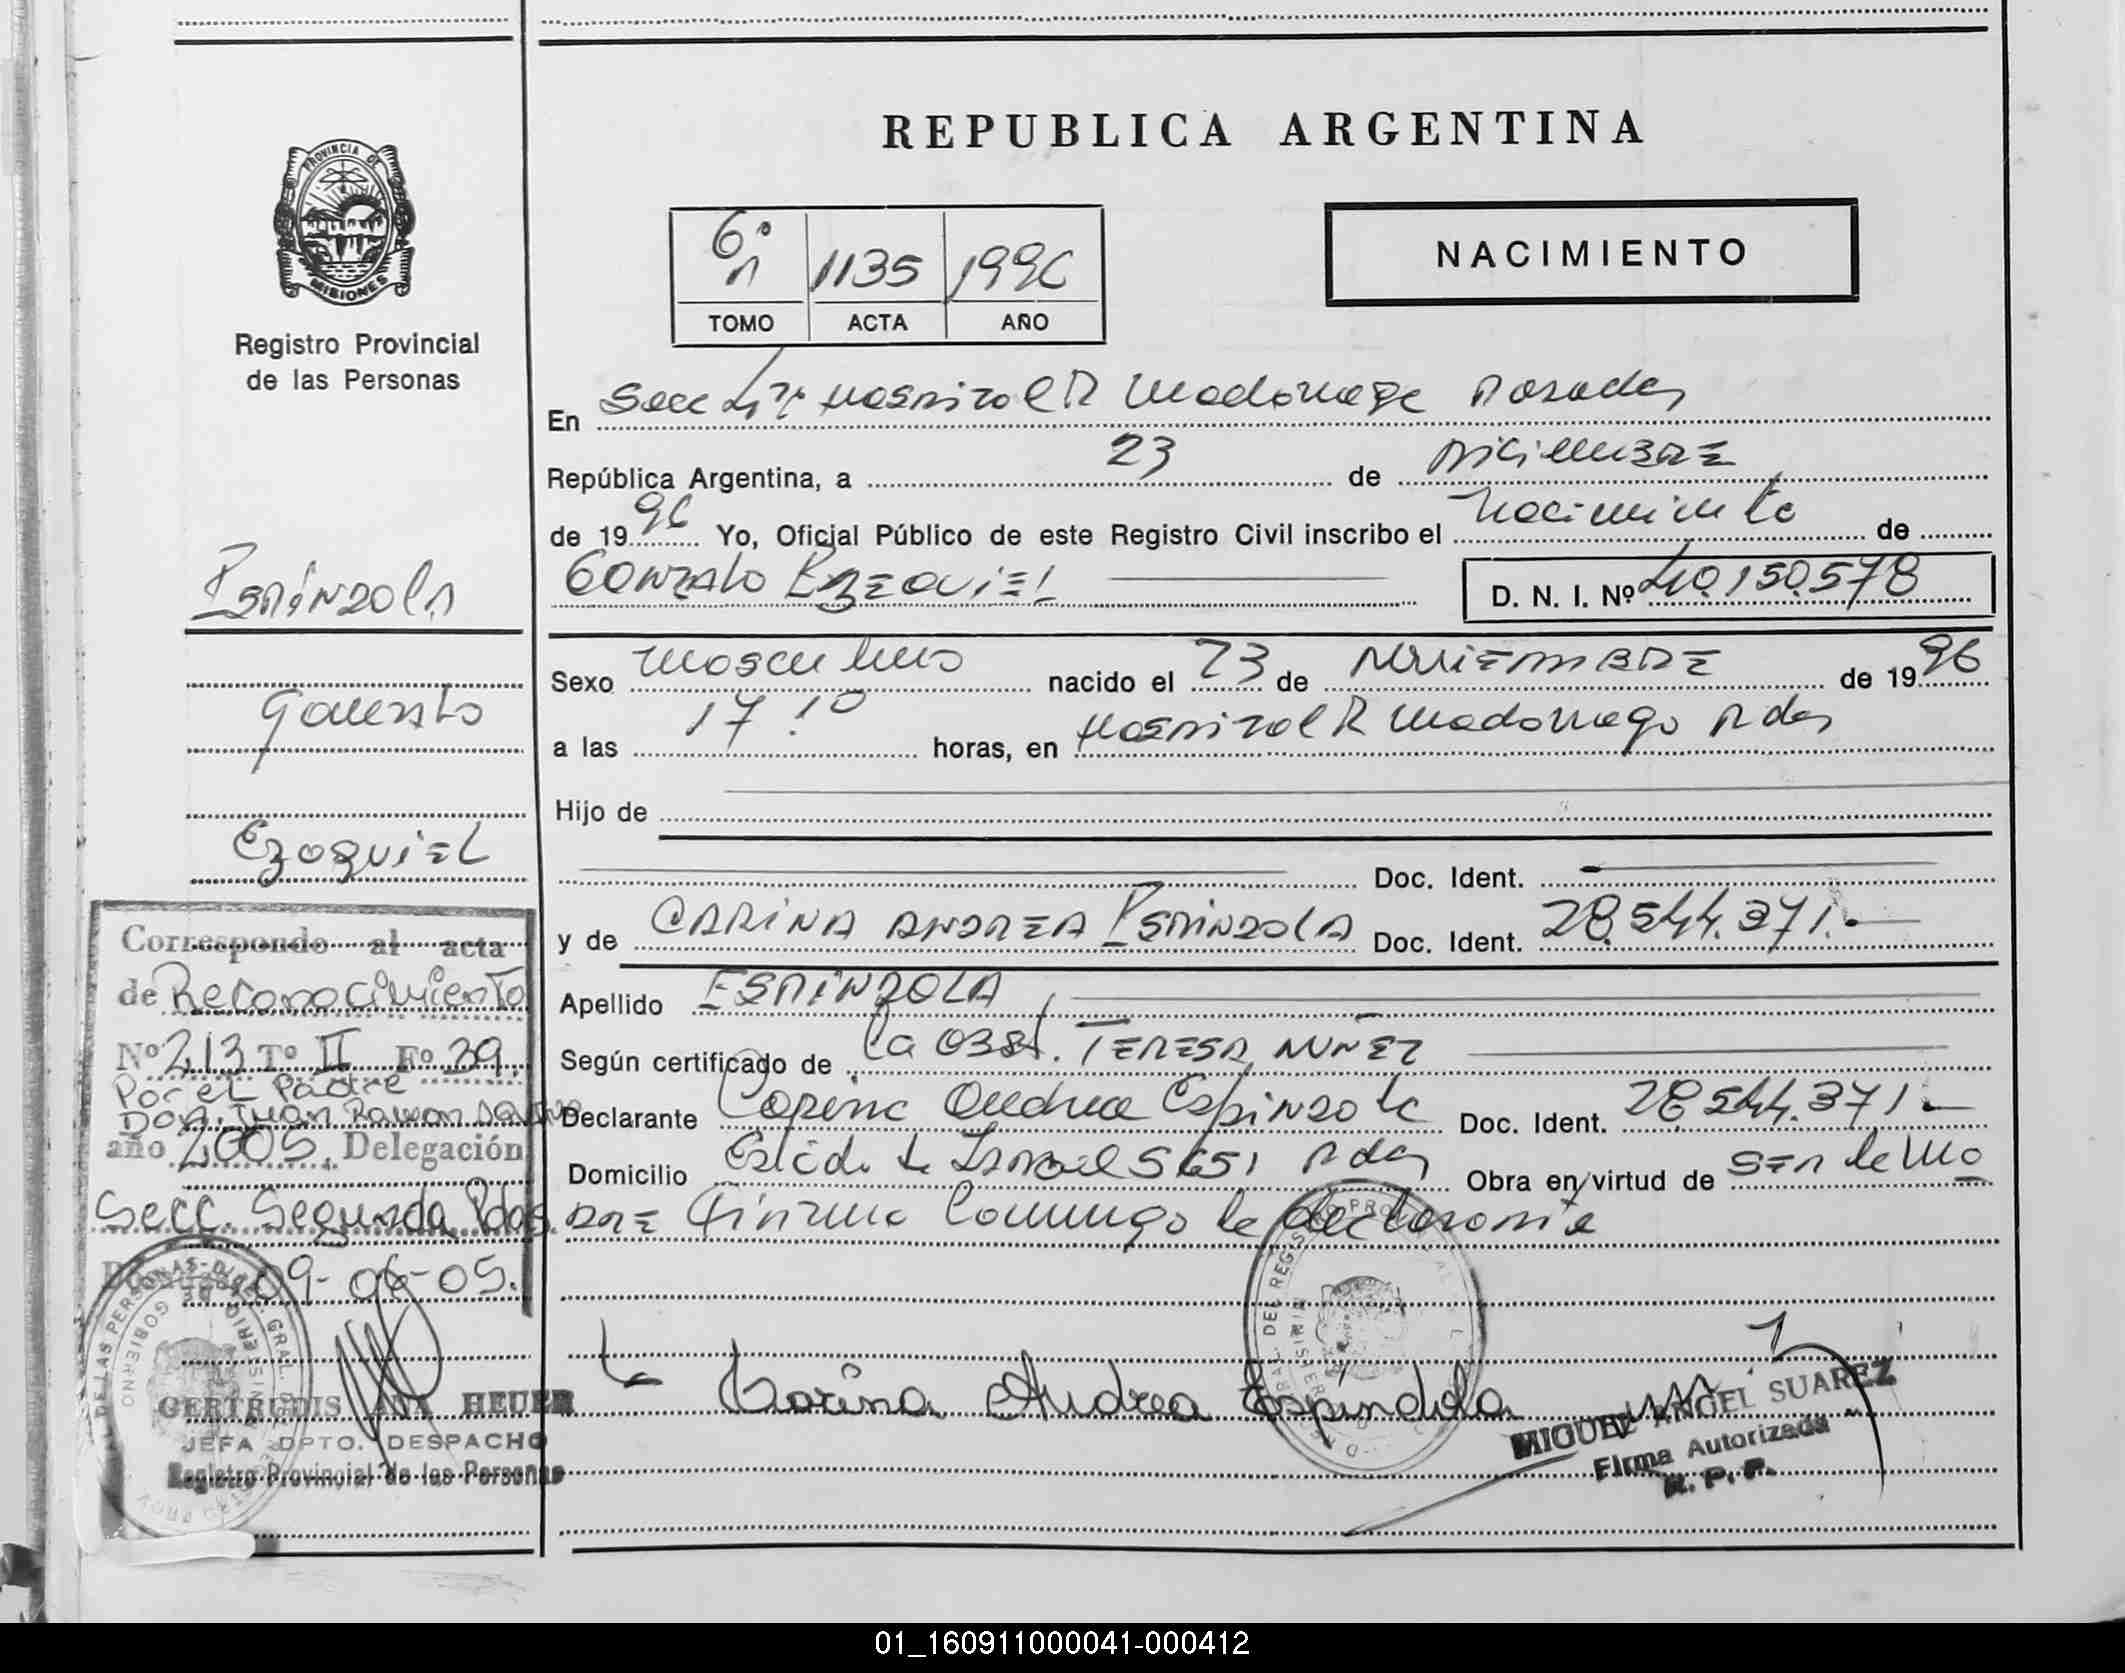 REPUBLICA ARGENTINA
PROVINCIA DE
MISIONES
Registro Provincial
de las Personas
6º
1135 1996
TOMO ACTA AÑO
NACIMIENTO
En Secc Hospital R Madariaga Posadas
República Argentina, a 23 de Diciembre
de 1996 Yo, Oficial Público de este Registro Civil inscribo el Nacimiento de
Gonzalo Ezequiel D. N. I. Nº 40.150.578
Sexo Masculino nacido el 23 de Noviembre de 1996
a las 17:10 horas, en Hospital R Madariaga Pdas
Hijo de
Doc. Ident.
y de Carina Andrea Espindola Doc. Ident. 28.544.371.-
Apellido Espindola
Según certificado de la Obst. Teresa Nuñez
Declarante Carina Andrea Espindola Doc. Ident. 28.544.371.-
Domicilio de Israel 5651 Pdas Obra en virtud de ser la Ma
dre Firma Conmigo la declarante
Carina Andrea Espindola
MIGUEL ANGEL SUAREZ
Firma Autorizada
R. P. P.
Espindola
Gonzalo
Ezequiel
Correspondo al acta
de Reconocimiento
Nº 213 Tº II Fº 39.
Por el Padre
Don. Juan Ramon
año 2005. Delegación
Secc. Segunda Pdas.
09-06-05.
GERTRUDIS ANA HEUER
JEFA DPTO. DESPACHO
Registro Provincial de las Personas
01_160911000041-000412